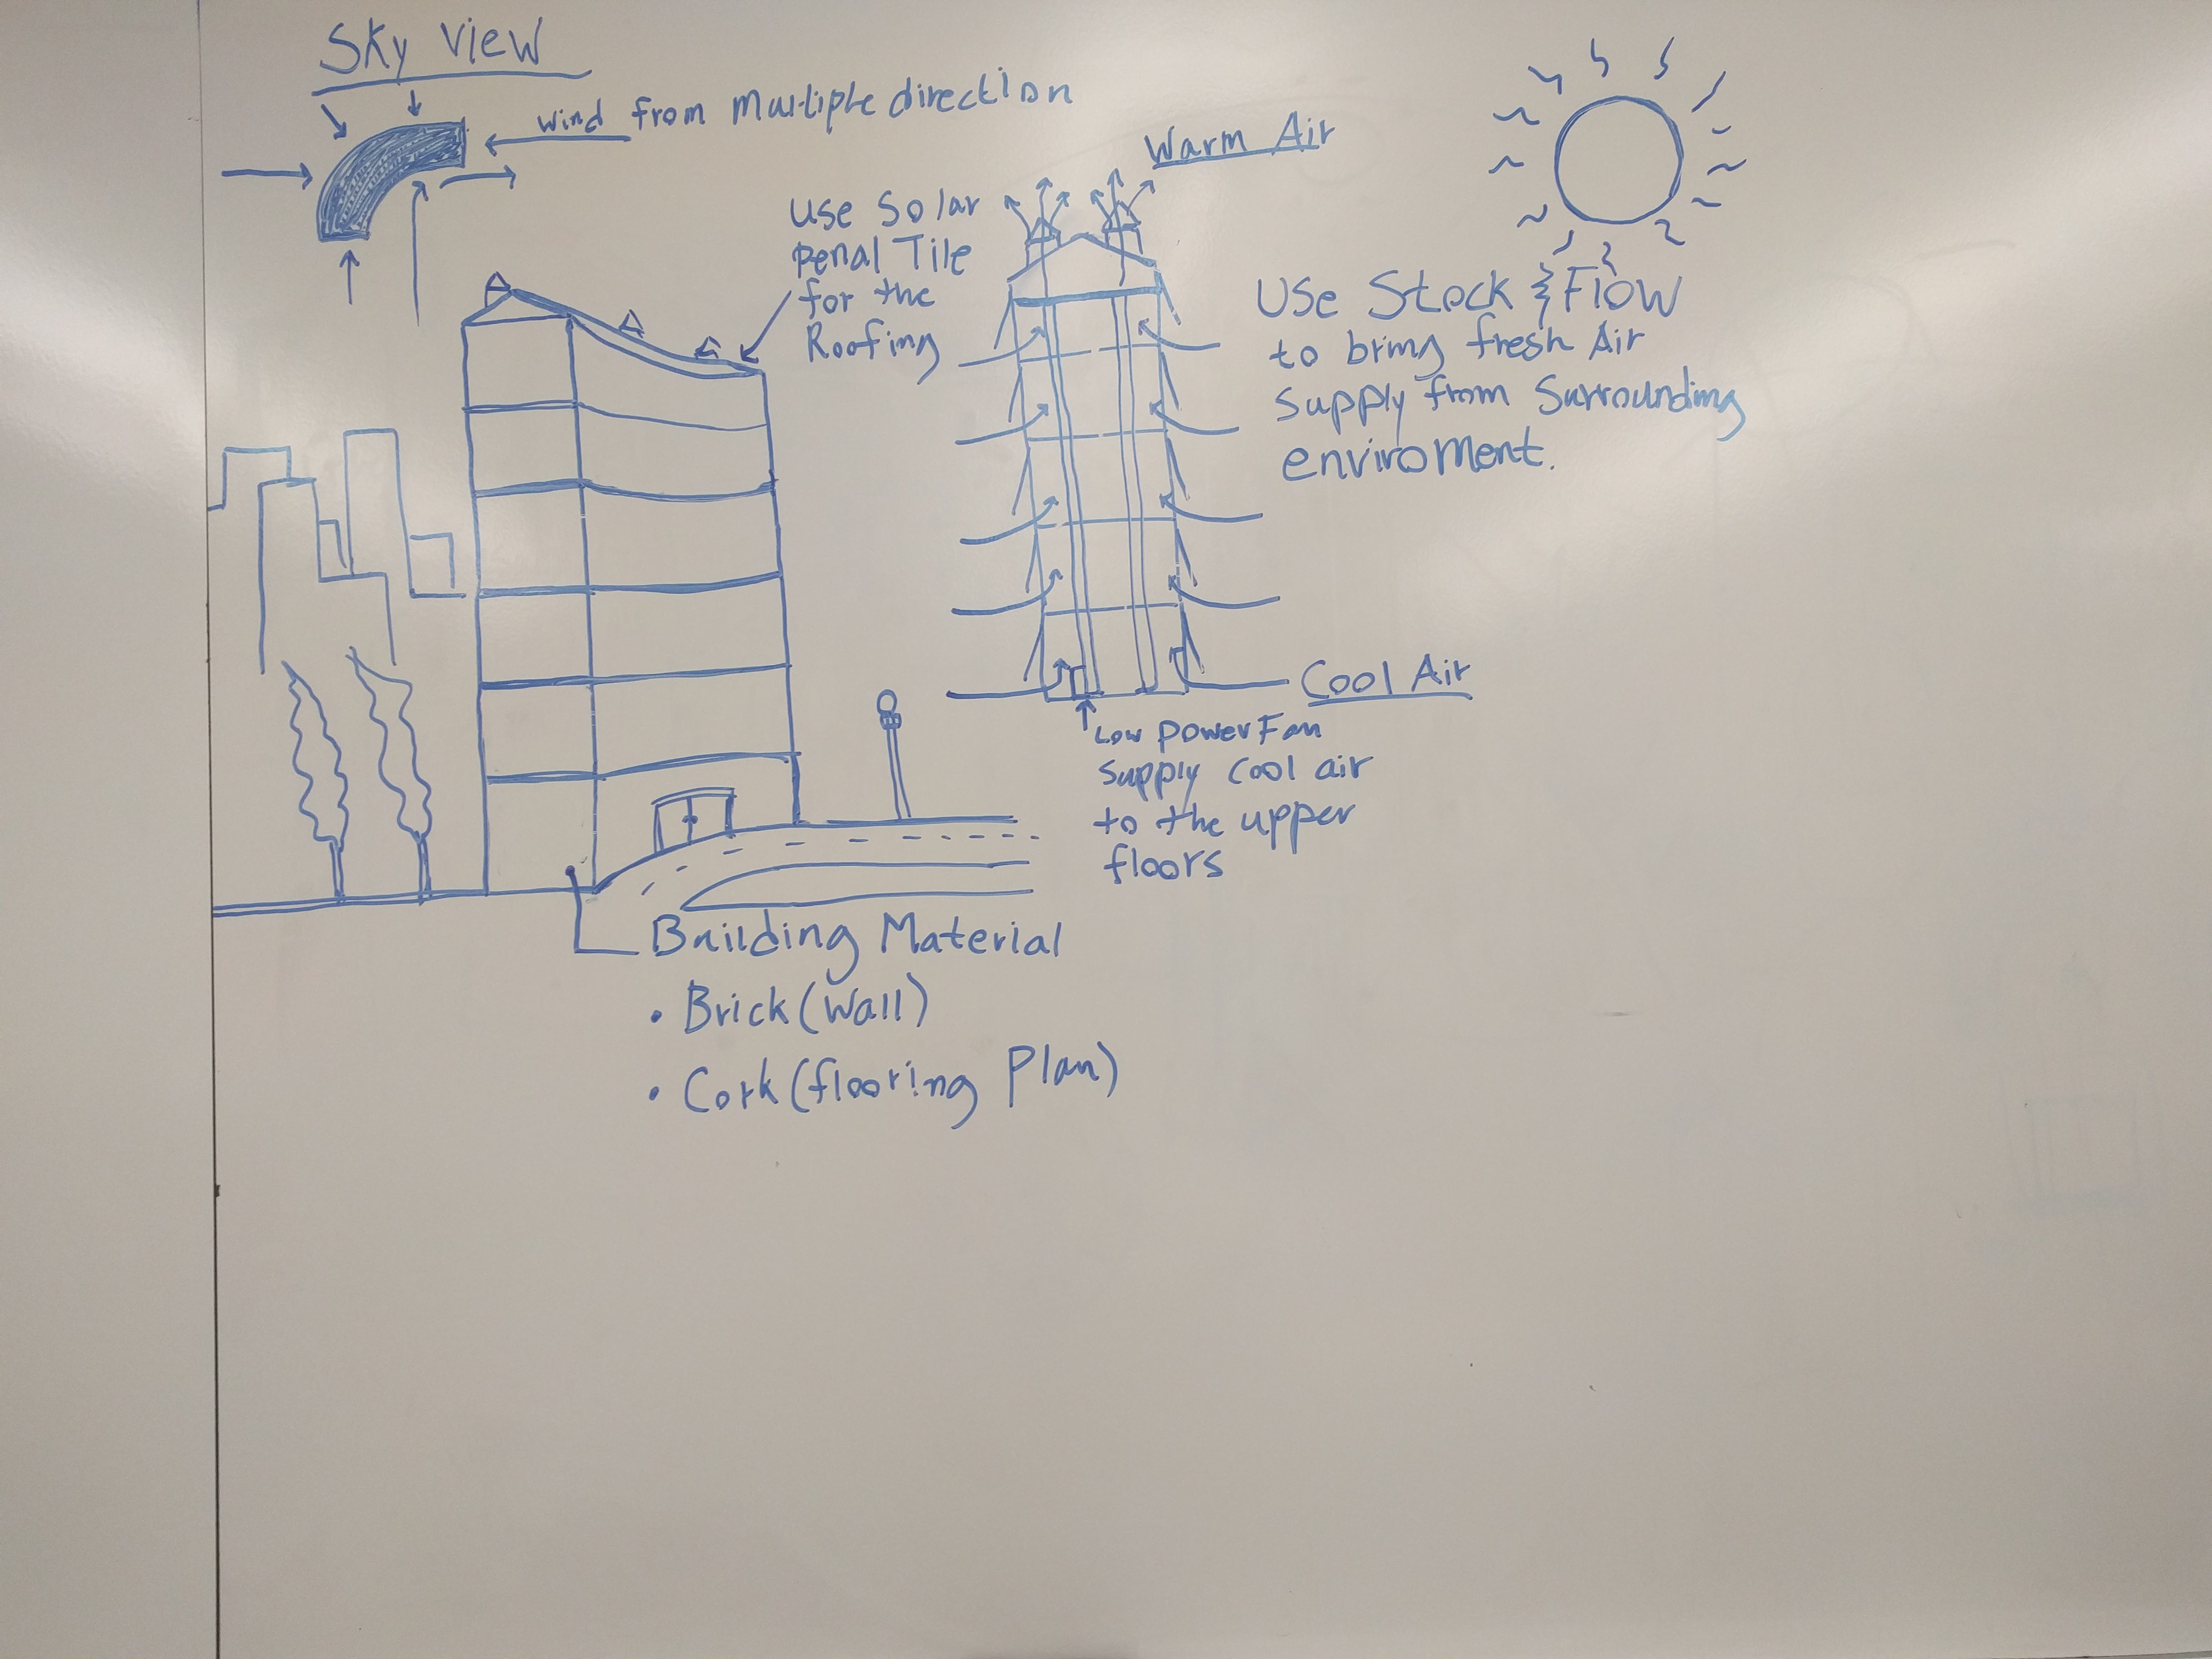 Sky View
Wind from Multiple direction
Warm Air
Use Solar
Penal Tile
for the
Roofing
Use Stock & Flow
to bring fresh Air
Supply from Surrounding
enviroment.
Cool Air
Low Power Fan
Supply Cool air
to the upper
floors
Building Material
• Brick (Wall)
• Cork (flooring Plan)